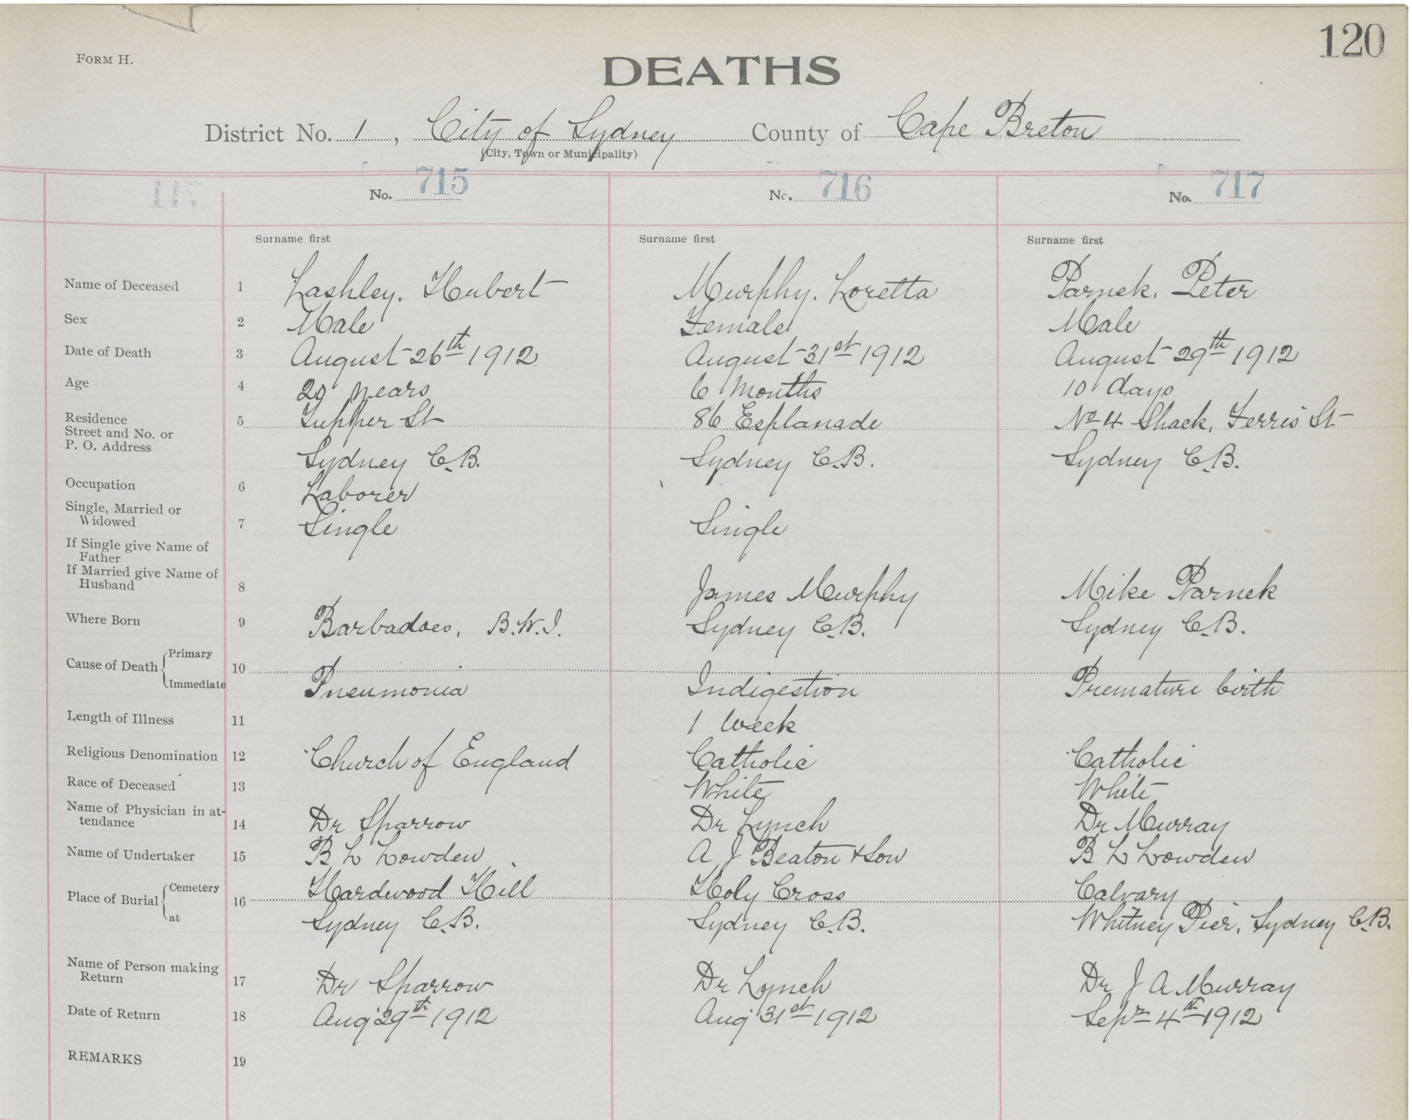 120
FORM H.
DEATHS
District No. 1, City of Sydney County of Cape Breton
(City, Town or Municipality)
No. 715 No. 716 No. 717
Surname first Surname first Surname first
Name of Deceased 1 Lashley, Hubert Murphy, Loretta Parnek, Peter
Sex 2 Male Female Male
Date of Death 3 August 26th 1912 August 31st 1912 August 29th 1912
Age 4 29 years 6 Months 10 days
Residence Street and No. or P. O. Address 5 Tupper St 86 Esplanade No 4 Shack, Ferris St
Sydney C.B. Sydney C.B. Sydney C.B.
Occupation 6 Laborer
Single, Married or Widowed 7 Single Single
If Single give Name of Father
If Married give Name of Husband 8 James Murphy Mike Parnek
Where Born 9 Barbadoes, B.W.I. Sydney C.B. Sydney C.B.
Cause of Death Primary 10
Immediate Pneumonia Indigestion Premature birth
Length of Illness 11 1 Week
Religious Denomination 12 Church of England Catholic Catholic
Race of Deceased 13 White White
Name of Physician in attendance 14 Dr Sparrow Dr Lynch Dr Murray
Name of Undertaker 15 B L Lowden A J Beaton & Son B L Lowden
Place of Burial Cemetery 16 Hardwood Hill Holy Cross Calvary
at Sydney C.B. Sydney C.B. Whitney Pier, Sydney C.B.
Name of Person making Return 17 Dr Sparrow Dr Lynch Dr J A Murray
Date of Return 18 Aug 29th 1912 Aug 31st 1912 Sepr 4th 1912
REMARKS 19